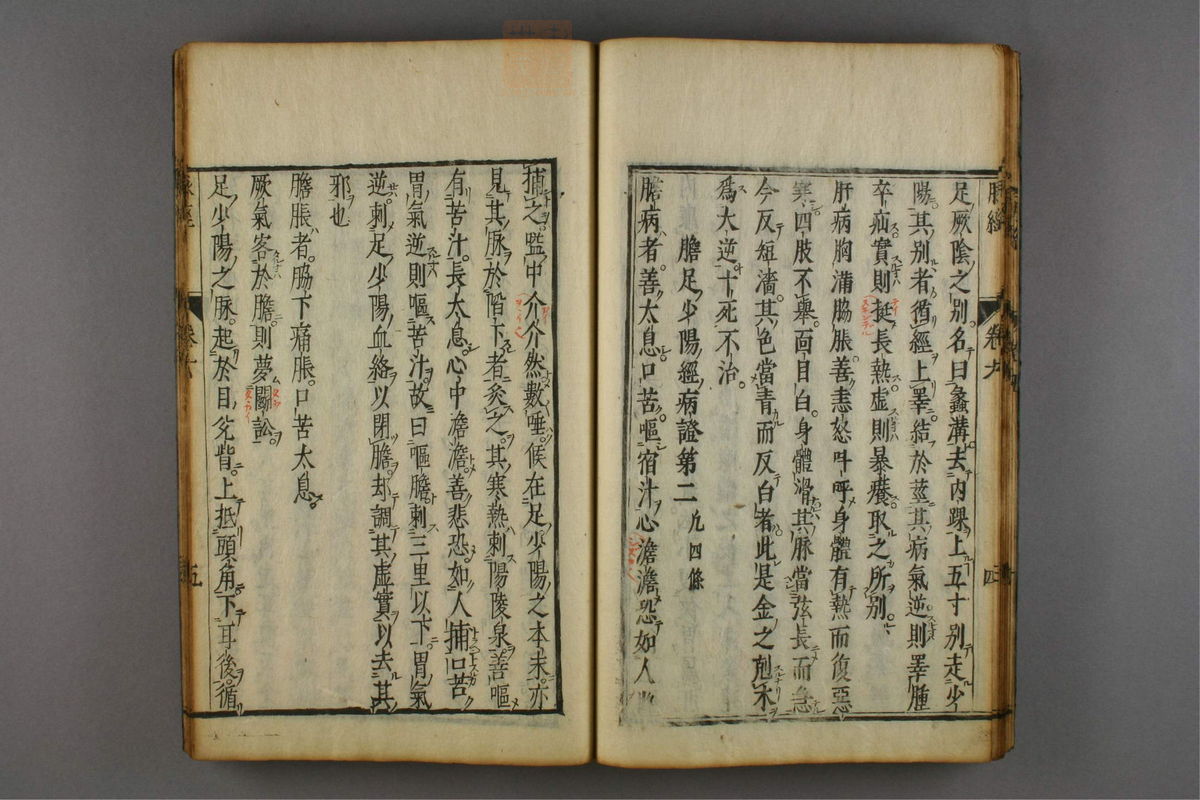 足厥陰之別名曰蠡溝去内踝上五寸別走少
陽其別者循經上睪結於莖其病氣逆則睪腫
卒疝實則挺長熱虛則暴癢取之所別
肝病胸滿脇脹善恚怒叫呼身體有熱而復惡
寒四肢不舉面目白身體滑其脉當弦長而急
今反短濇其色當青而反白者此是金之剋木
爲大逆十死不治
膽足少陽經病證第二 凢四條
膽病者善太息口苦嘔宿汁心澹澹恐如人
捕之嗌中介介然數唾候在足少陽之本末亦
見其脉於陷下者灸之其寒熱刺陽陵泉善嘔
有苦汁長太息心中澹澹善悲恐如人捕口苦
胃氣逆則嘔苦汁故曰嘔膽刺三里以下胃氣
逆刺足少陽血絡以閉膽却調其虛實以去其
邪也
膽脹者脇下痛脹口苦太息
厥氣客於膽則夢鬪訟
足少陽之脉起於目兊眥上抵頭角下耳後循
脉經
卷六
五